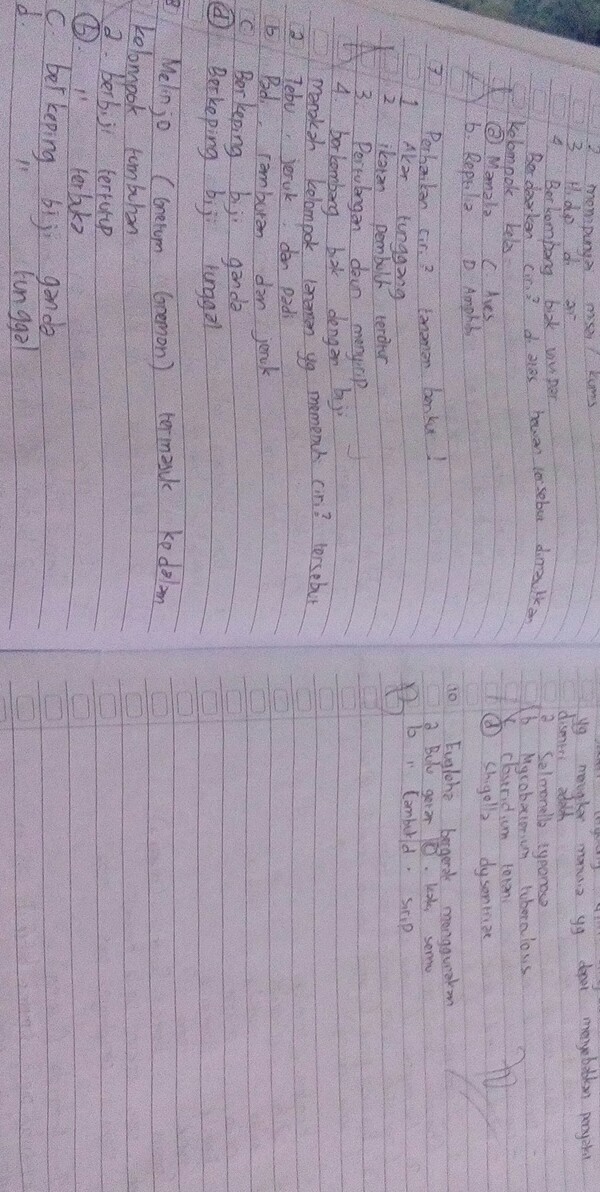 mempunyai
3 Hidup di air
4. Berkembang biak vivipar
Berdasarkan ciri² di atas hewan tersebut dimasukkan
kelompok kelas
(a) Mamalia C. Aves
b. Reptilia D Amphibi
7 Perhatikan ciri² tanaman berikut !
1 Akar tunggang
2 ikatan pembuluh teratur
3. Pertulangan daun menyirip
4. berkembang biak dengan biji
manakah kelompok tanaman yg memenuhi ciri² tersebut
a Tebu, jeruk, dan padi
b Padi, rambutan dan jeruk
c Berkeping biji ganda
(d) Berkeping biji tunggal
8 Melinjo (Gnetum Gnemon) termasuk kedalam
kelompok tumbuhan
a. berbiji tertutup
(b). " terbuka
C. berkeping biji ganda
d. " tunggal
yg menyebabkan penyakit
disentri adalah
a Salmonella typhosa
b Mycrobacterium tuberculosis
c clostridium tetani
(d) Shigella dysentriae
10 Euglena bergerak menggunakan
a Bulu getar (c). kaki semu
b " cambuk d. sirip